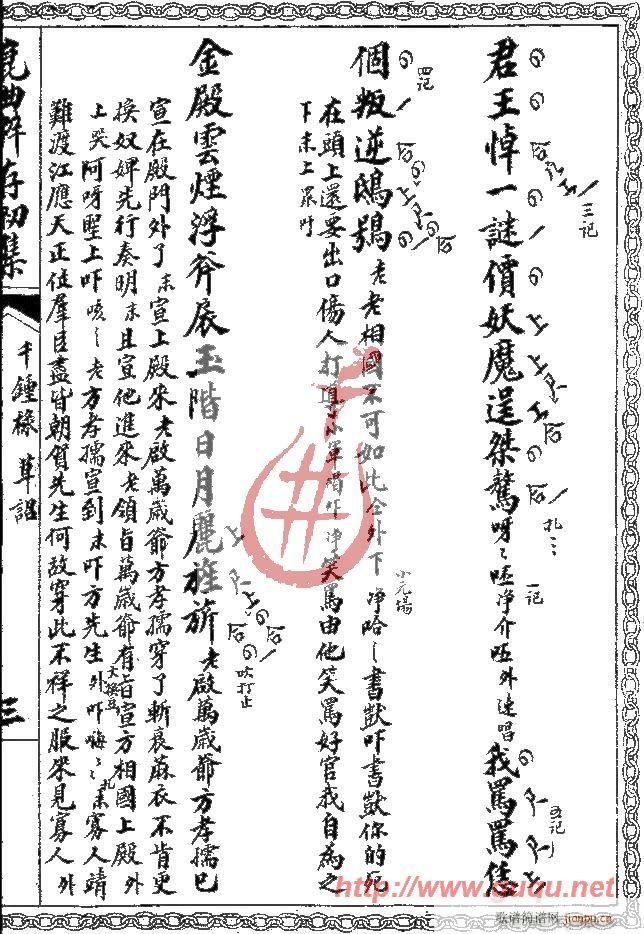 君王悼一謎價妖魔逞桀驁呀〻呸淨介呸外連唱我罵罵恁
個叛逆鴟鴞老老相國不可如此仝外下淨哈〻書獃吓書獃你的死
在頭上還要出口傷人打導小軍喏吓淨笑罵由他笑罵好官我自為之
下末上眾吋
金殿雲煙浮斧扆玉階日月麗旌旂老啟萬歲爺方孝孺已
宣在殿門外了末宣上殿來老啟萬歲爺方孝孺穿了斬衰蔴衣不肯更
換奴婢先行奏明末且宣他進來老領旨萬歲爺有旨宣方相國上殿外
上哭阿呀聖上吓咳〻老方孝孺宣到末吓方先生外吓嗨〻末寡人靖
難渡江應天正位羣臣盡皆朝賀先生何故穿此不祥之服來見寡人外
崑曲粹存初集
千鍾祿 草詔
三
四記
三記
扎
一記
五記
小元場
吹打止
http://www.guqu.net
歌谱简谱网
jianpu.cn